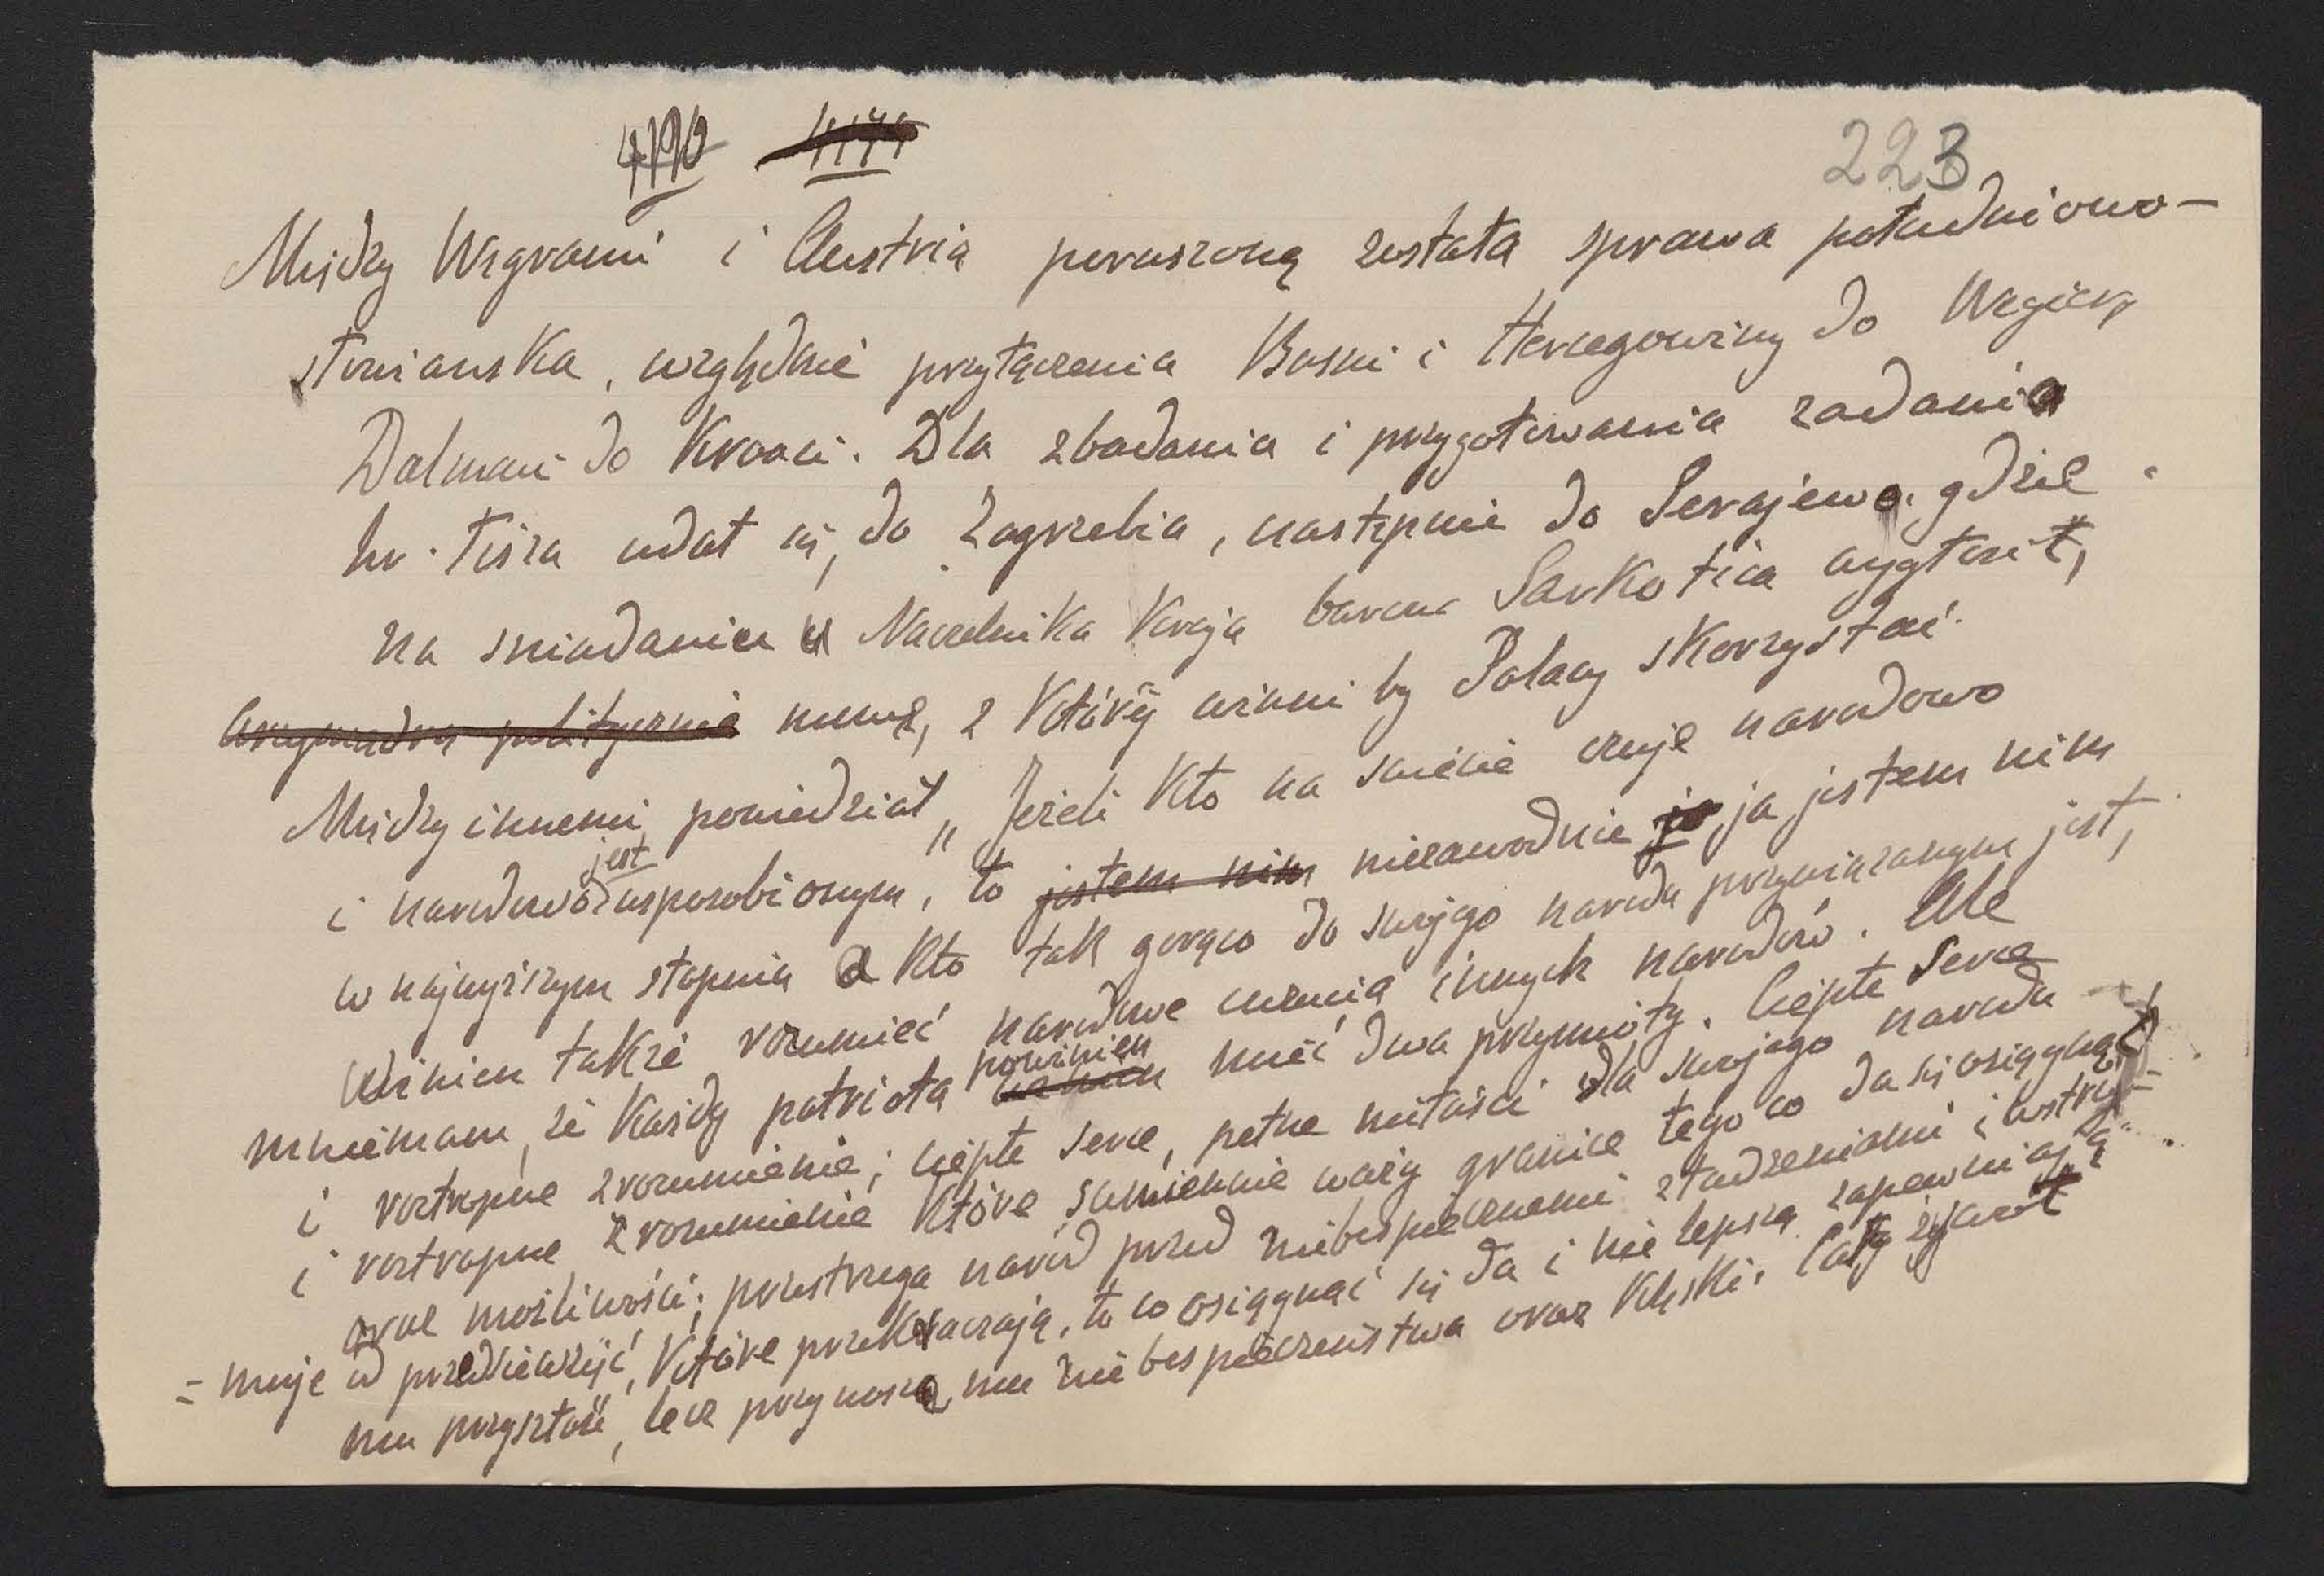 4190 4174
223
Między Węgrami i Austrią poruszoną została sprawa południowo-
słowiańska, względnie przyłączenia Bosni i Hercegowiny do Węgier,
Dalmaci do Kroaci. Dla zbadania i przygotowania zadania
hr. Tisza udał się, do Zagrzebia, następnie do Serajewa, gdzie
na sniadaniu u Naczelnika Kraju barona Sarkotica wygłosił,
mowę, z której winni by Polacy skorzystać.
Między innemi, powiedział „Jeżeli kto na świecie czuje narodowo
i narodowo jest usposobionym, to jestem nim niezawodnie ja jestem nim
w najwyższym stopniu a kto tak gorąco do swojego narodu przywiązanym jest,
winien także rozumieć narodowe uczucia innych narodów. Ale
mniemam, że każdy patriota powinien mieć dwa przymioty. Ciepłe serce
i roztropne zrozumienie; ciepłe serce, pełne miłości dla swojego narodu
i roztropne zrozumienie które sumiennie waży granice tego co da się osiągnąć
oraz możliwości; przestrzega naród przed niebespiecznemi złudzeniami i wstrzy-
=muje od przedsięwzięć, które przekraczają, to co osiągnąć się da i nie lepszą zapewniają
mu przyszłość, lecz przynoszą mu niebespieczeństwa oraz klęski. Cały żywot